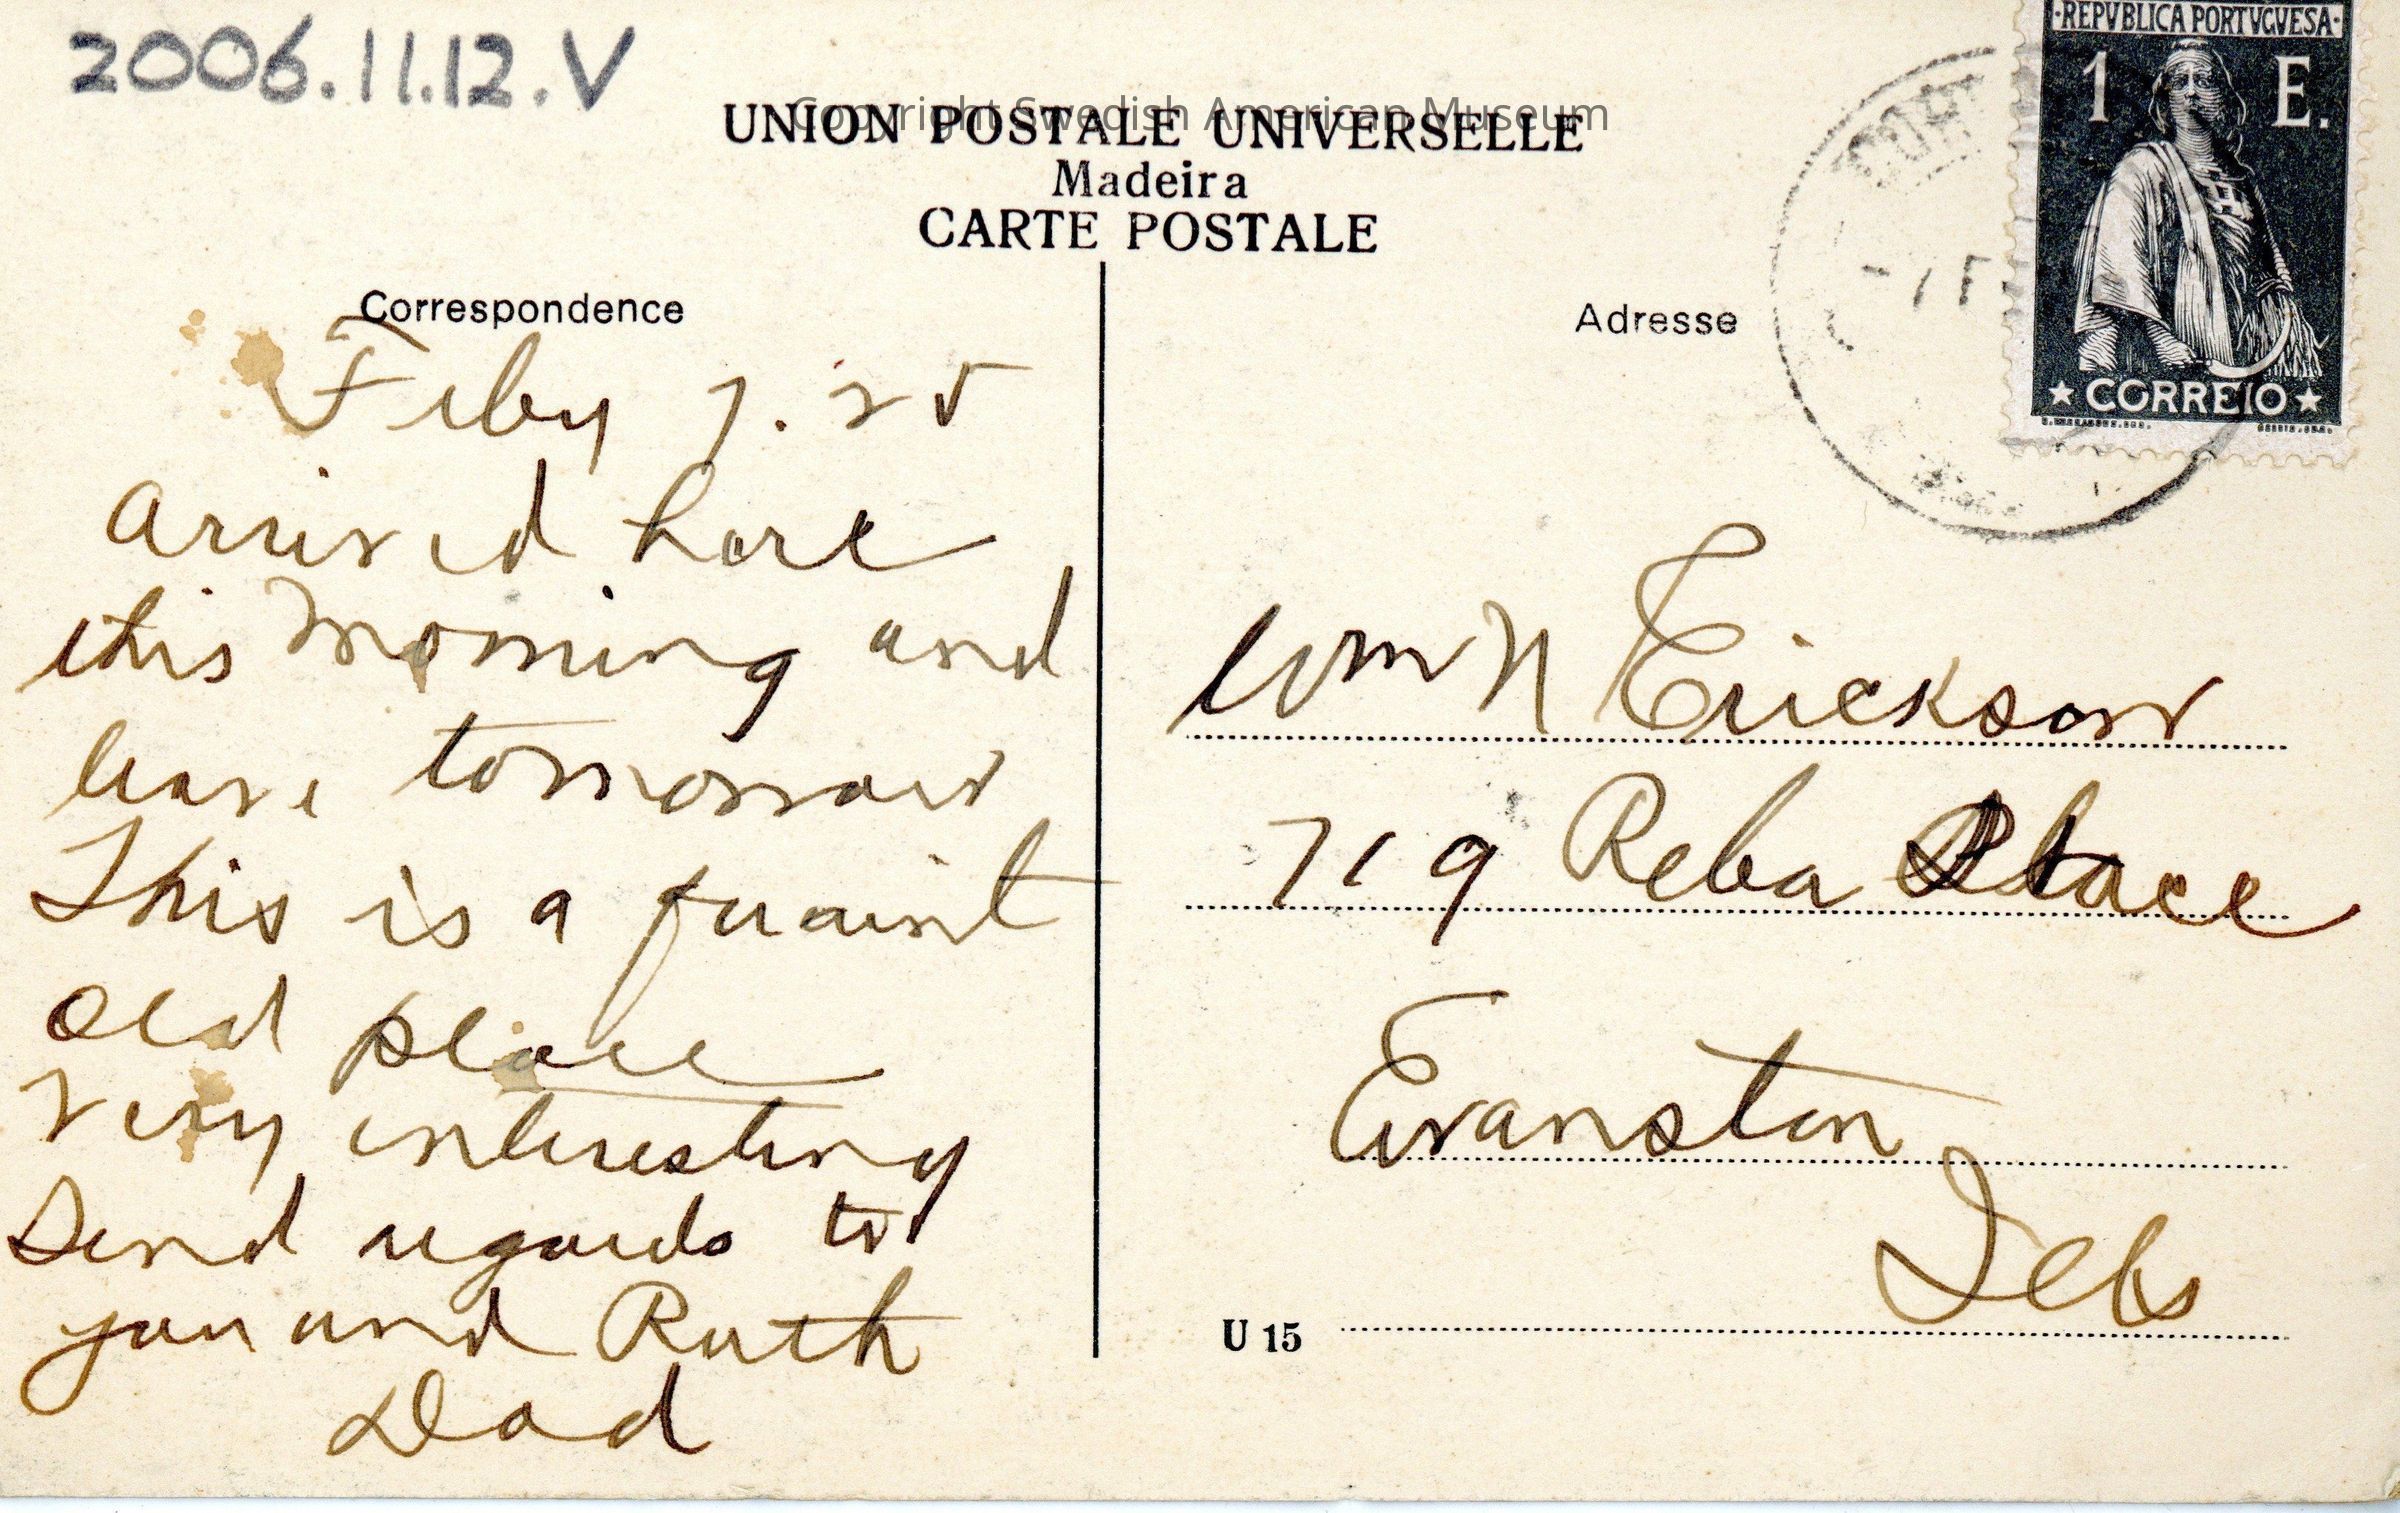 2006.11.12.V
·REPVBLICA PORTVGVESA·
1 E.
★ CORREIO ★
Copyright Swedish American Museum
UNION POSTALE UNIVERSELLE
Madeira
CARTE POSTALE
Correspondence
Feby 7. 25
Arrived here
this morning and
leave tomorrow
This is a quaint
old place
very interesting
Send regards to
you and Ruth
Dad
Adresse
Wm N Erickson
719 Reba Place
Evanston
Ills
U 15